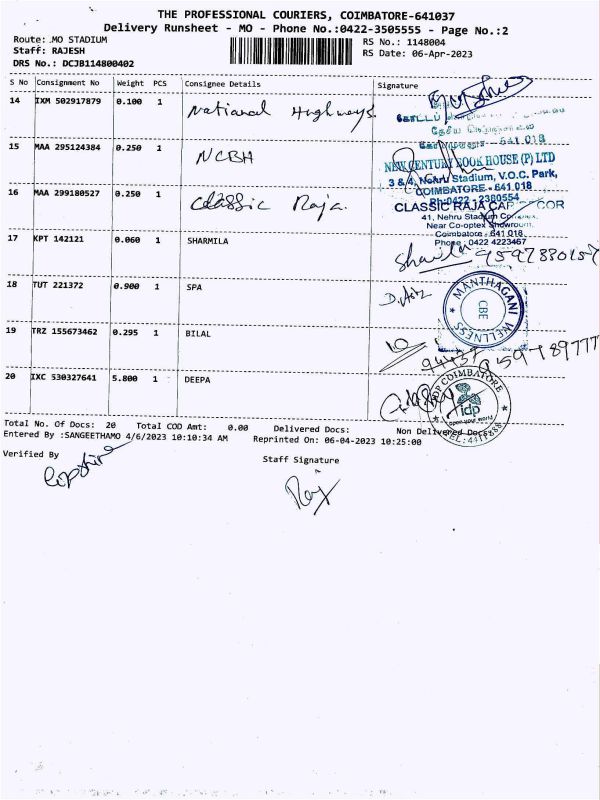 THE PROFESSIONAL COURIERS, COIMBATORE-641037
Delivery Runsheet - MO - Phone No.:0422-3505555 - Page No.:2
Route: .MO STADIUM
RS No.: 1148004
Staff: RAJESH
RS Date: 06-Apr-2023
DRS No.: DCJB114800402
S No Consignment No Weight PCS Consignee Details Signature
14 IXM 502917879 0.100 1 National Highways
641 018
15 MAA 295124384 0.250 1 NCBH
NEW CENTURY BOOK HOUSE (P) LTD
3 & 4, Nehru Stadium, V.O.C. Park,
COIMBATORE - 641 018
Ph:0422 - 2380554
16 MAA 299180527 0.250 1 Classic Raja.
CLASSIC RAJA
41, Nehru Stadium Complex,
Near Co-optex Showroom,
Coimbatore - 641 018
Phone : 0422 4223467
17 KPT 142121 0.060 1 SHARMILA
18 TUT 221372 0.900 1 SPA
MANTHAGANI WELLNESS
CBE
19 TRZ 155673462 0.295 1 BILAL
20 IXC 530327641 5.800 1 DEEPA
IDP COIMBATORE
idp
Total No. Of Docs: 20 Total COD Amt: 0.00 Delivered Docs: Non Delivered Docs:
Entered By :SANGEETHAMO 4/6/2023 10:10:34 AM Reprinted On: 06-04-2023 10:25:00
Verified By
Staff Signature